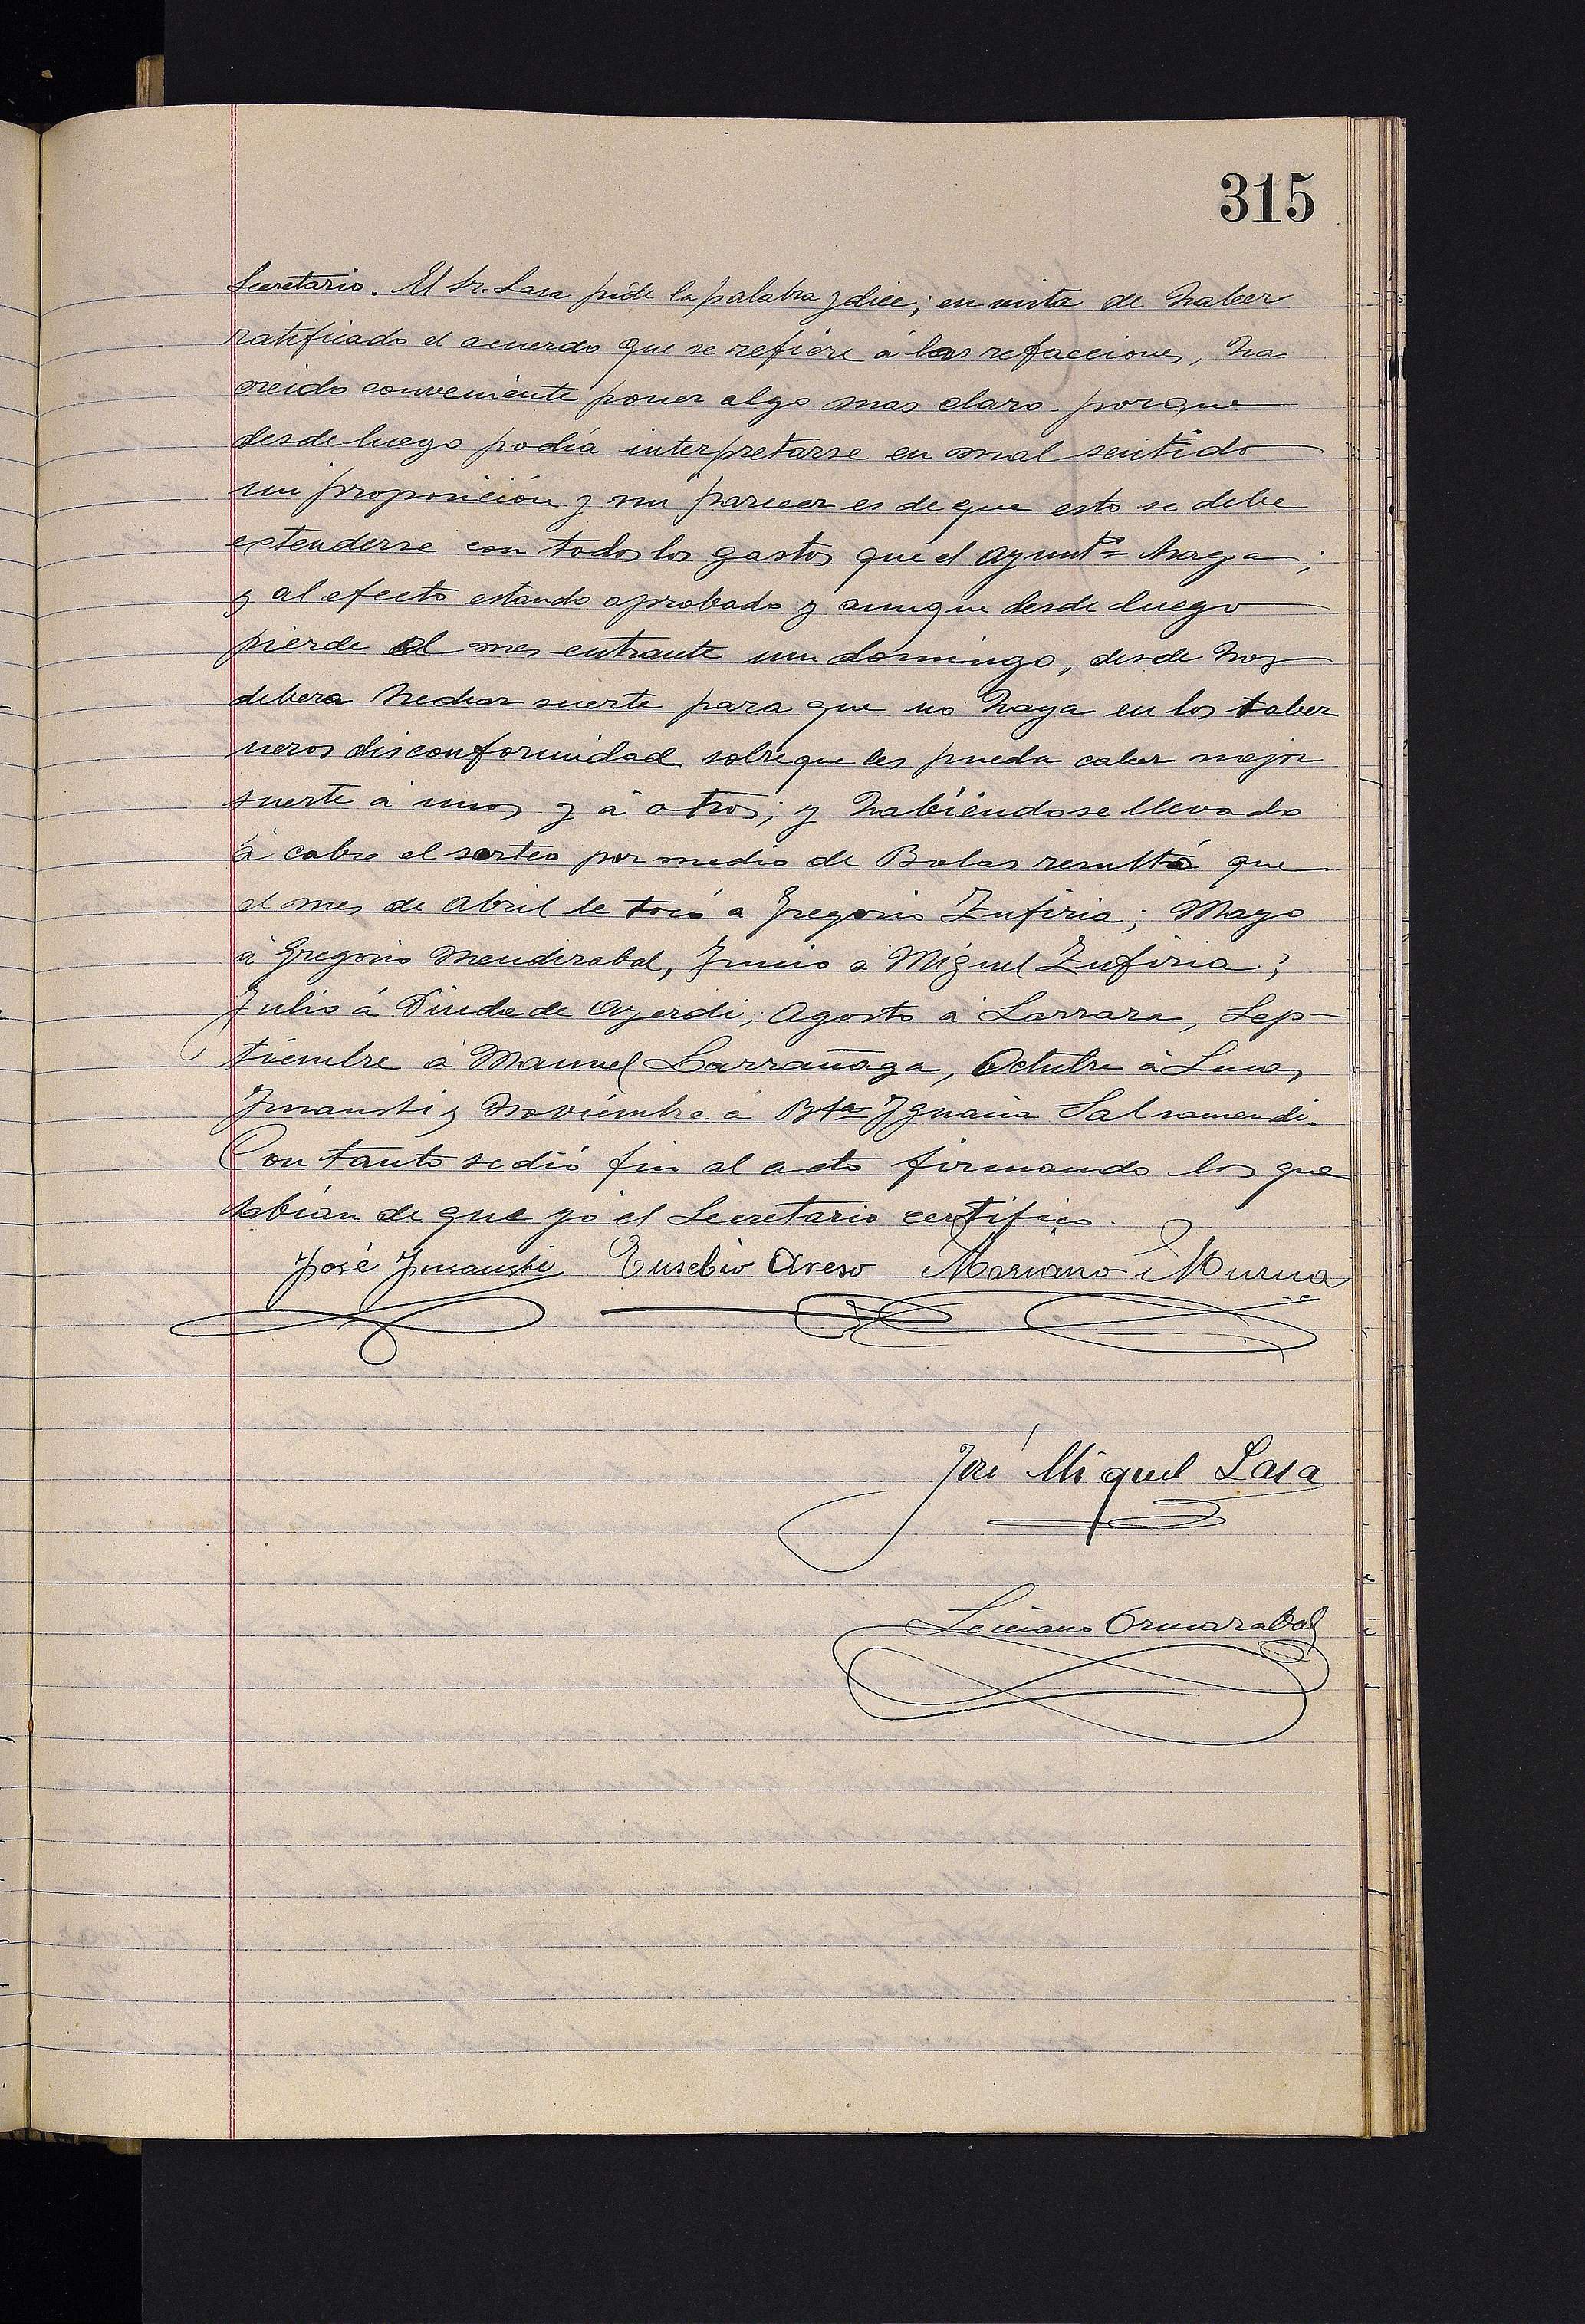 315
Secretario. El Sr. Lasa pide la palabra y dice; en vista de haber
ratificado el acuerdo que se refiere á las refacciones, ha
creido conveniente poner algo mas claro porque
desde luego podía interpretarse en mal sentido
mi proposición y mi parecer es de que esto se debe
extenderse con todos los gastos que el Ayuntº haga;
y al efecto estando aprobado y aunque desde luego
pierde el mes entrante un domingo, desde hoy
debera hechar suerte para que no haya en los taber
neros disconformidad sobre que les pueda caber mejor
suerte á unos y á otros; y habiéndose llevado
á cabo el sorteo por medio de Bolas resultó que
el mes de Abril le tocó a Gregorio Zufiria; Mayo
á Gregorio Mendizabal, Junio á Miguel Zufiria;
Julio á Viuda de Ayerdi; Agosto á Larrara, Sep-
tiembre á Manuel Larrañaga, Octubre á Lucas
Imausti y Noviembre á Bta Ygnacia Salsamendi.
Con tanto se dió fin al acto firmando los que
sabían de que yo el Secretario certifico.
José Ymausti Eusebio Areso Mariano Murua
José Miguel Lasa
Ormazabal